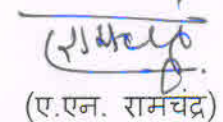 (ए.एन. रामचंद्र)